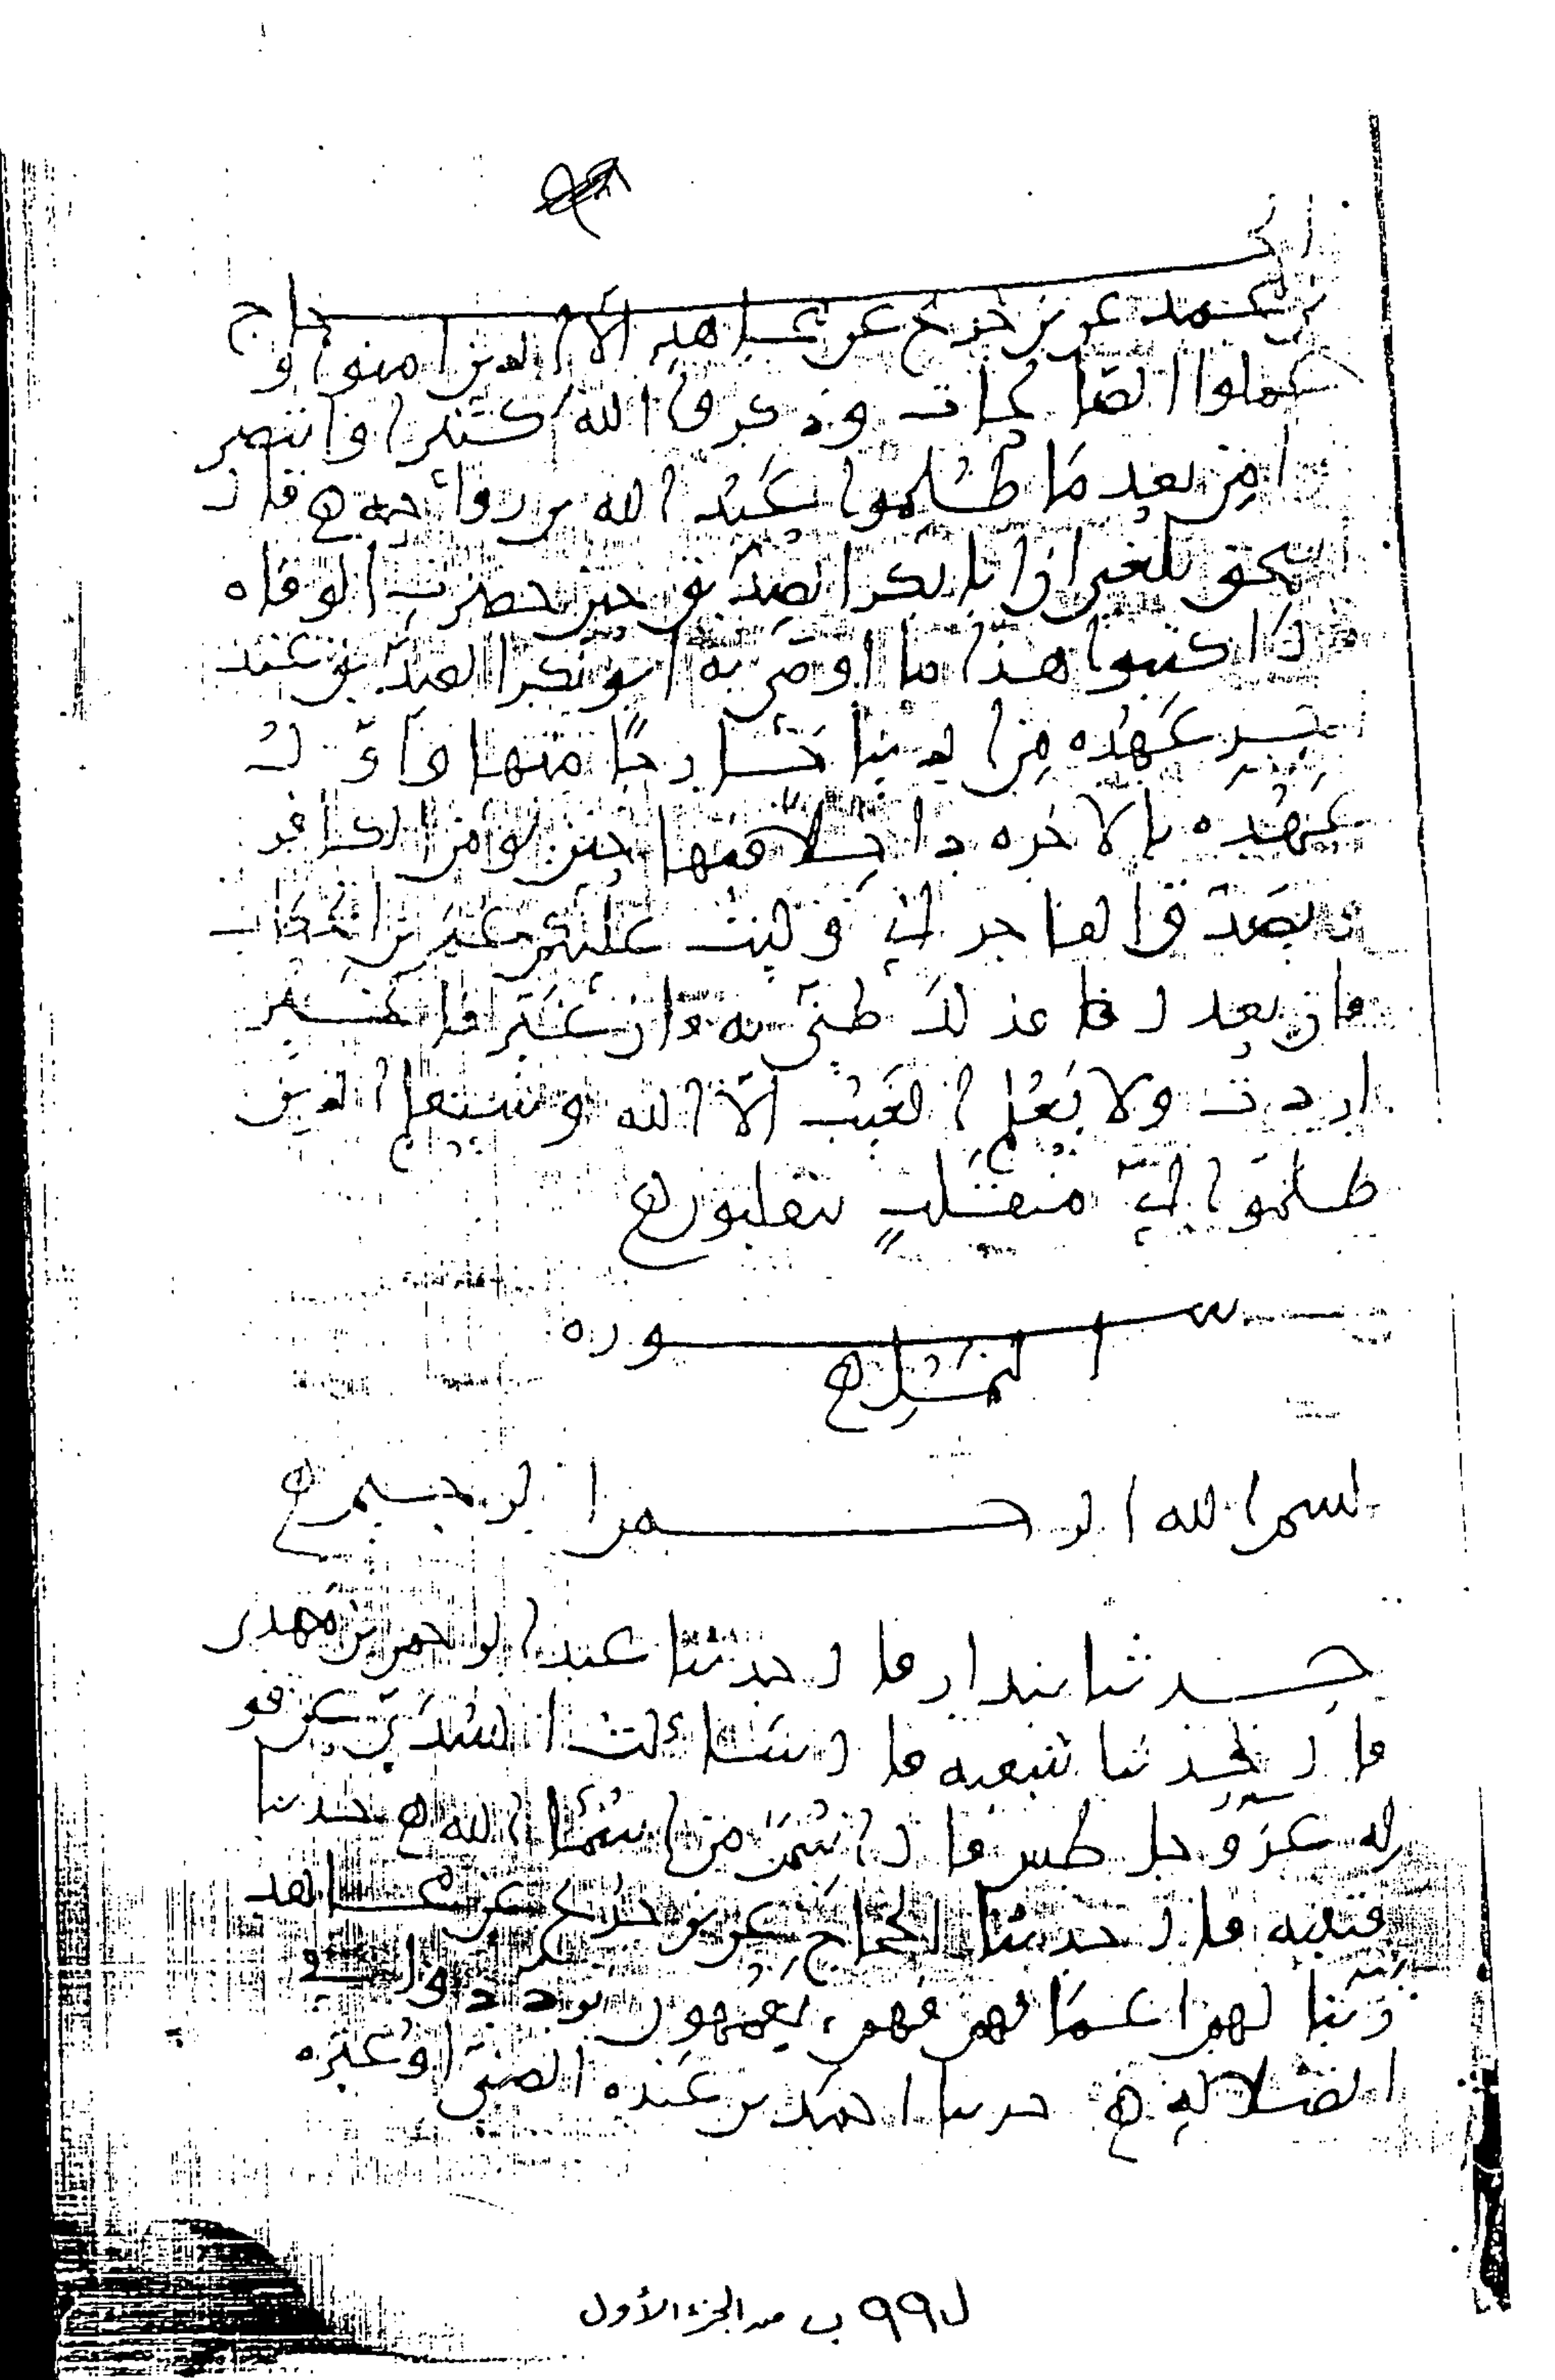 الحجاج
بن محمد عن بن جريج عن مجاهد الا الدين امنوا و
عملوا الصالحات وذكروا الله كثيرا وانتصر
وا من بعد ما ظلموا عبد الله بن رواحه ه قال
اسحق بلغني ان ابا بكر الصديق حين حضرت الوفاه
قال اكتبوا هذا ما اوصى به ابو بكر الصديق عند
اخر عهده من الدنيا خارجا منها واول
عهده بالاخره داخلا فيها حين يومن الكافر
ويصدق الفاجر اني وليت عليكم عمر بن الخطاب
فان يعدل فذلك ظني به وان غير فالخير
اردت ولا يعلم الغيب الا الله وسيعلم الذين
ظلموا اي منقلب ينقلبون ه
سوره
النمل ه
بسم الله الرحمن الرحيم ه
حدثنا بندار قال حدثنا عبد الرحمن بن مهدي
قال حدثنا شعبه قال سالت السدي عن قو
له عز وجل طس قال اسم من اسماء الله ه حدثنا
قتيبه قال حدثنا الحجاج عن بن جريج عن مجاهد
زينا لهم اعمالهم فهم يعمهون يترددون في
الضلاله ه حدثنا احمد بن عبده الضبي وغيره
ل ٩٩ ب من الجزء الأول